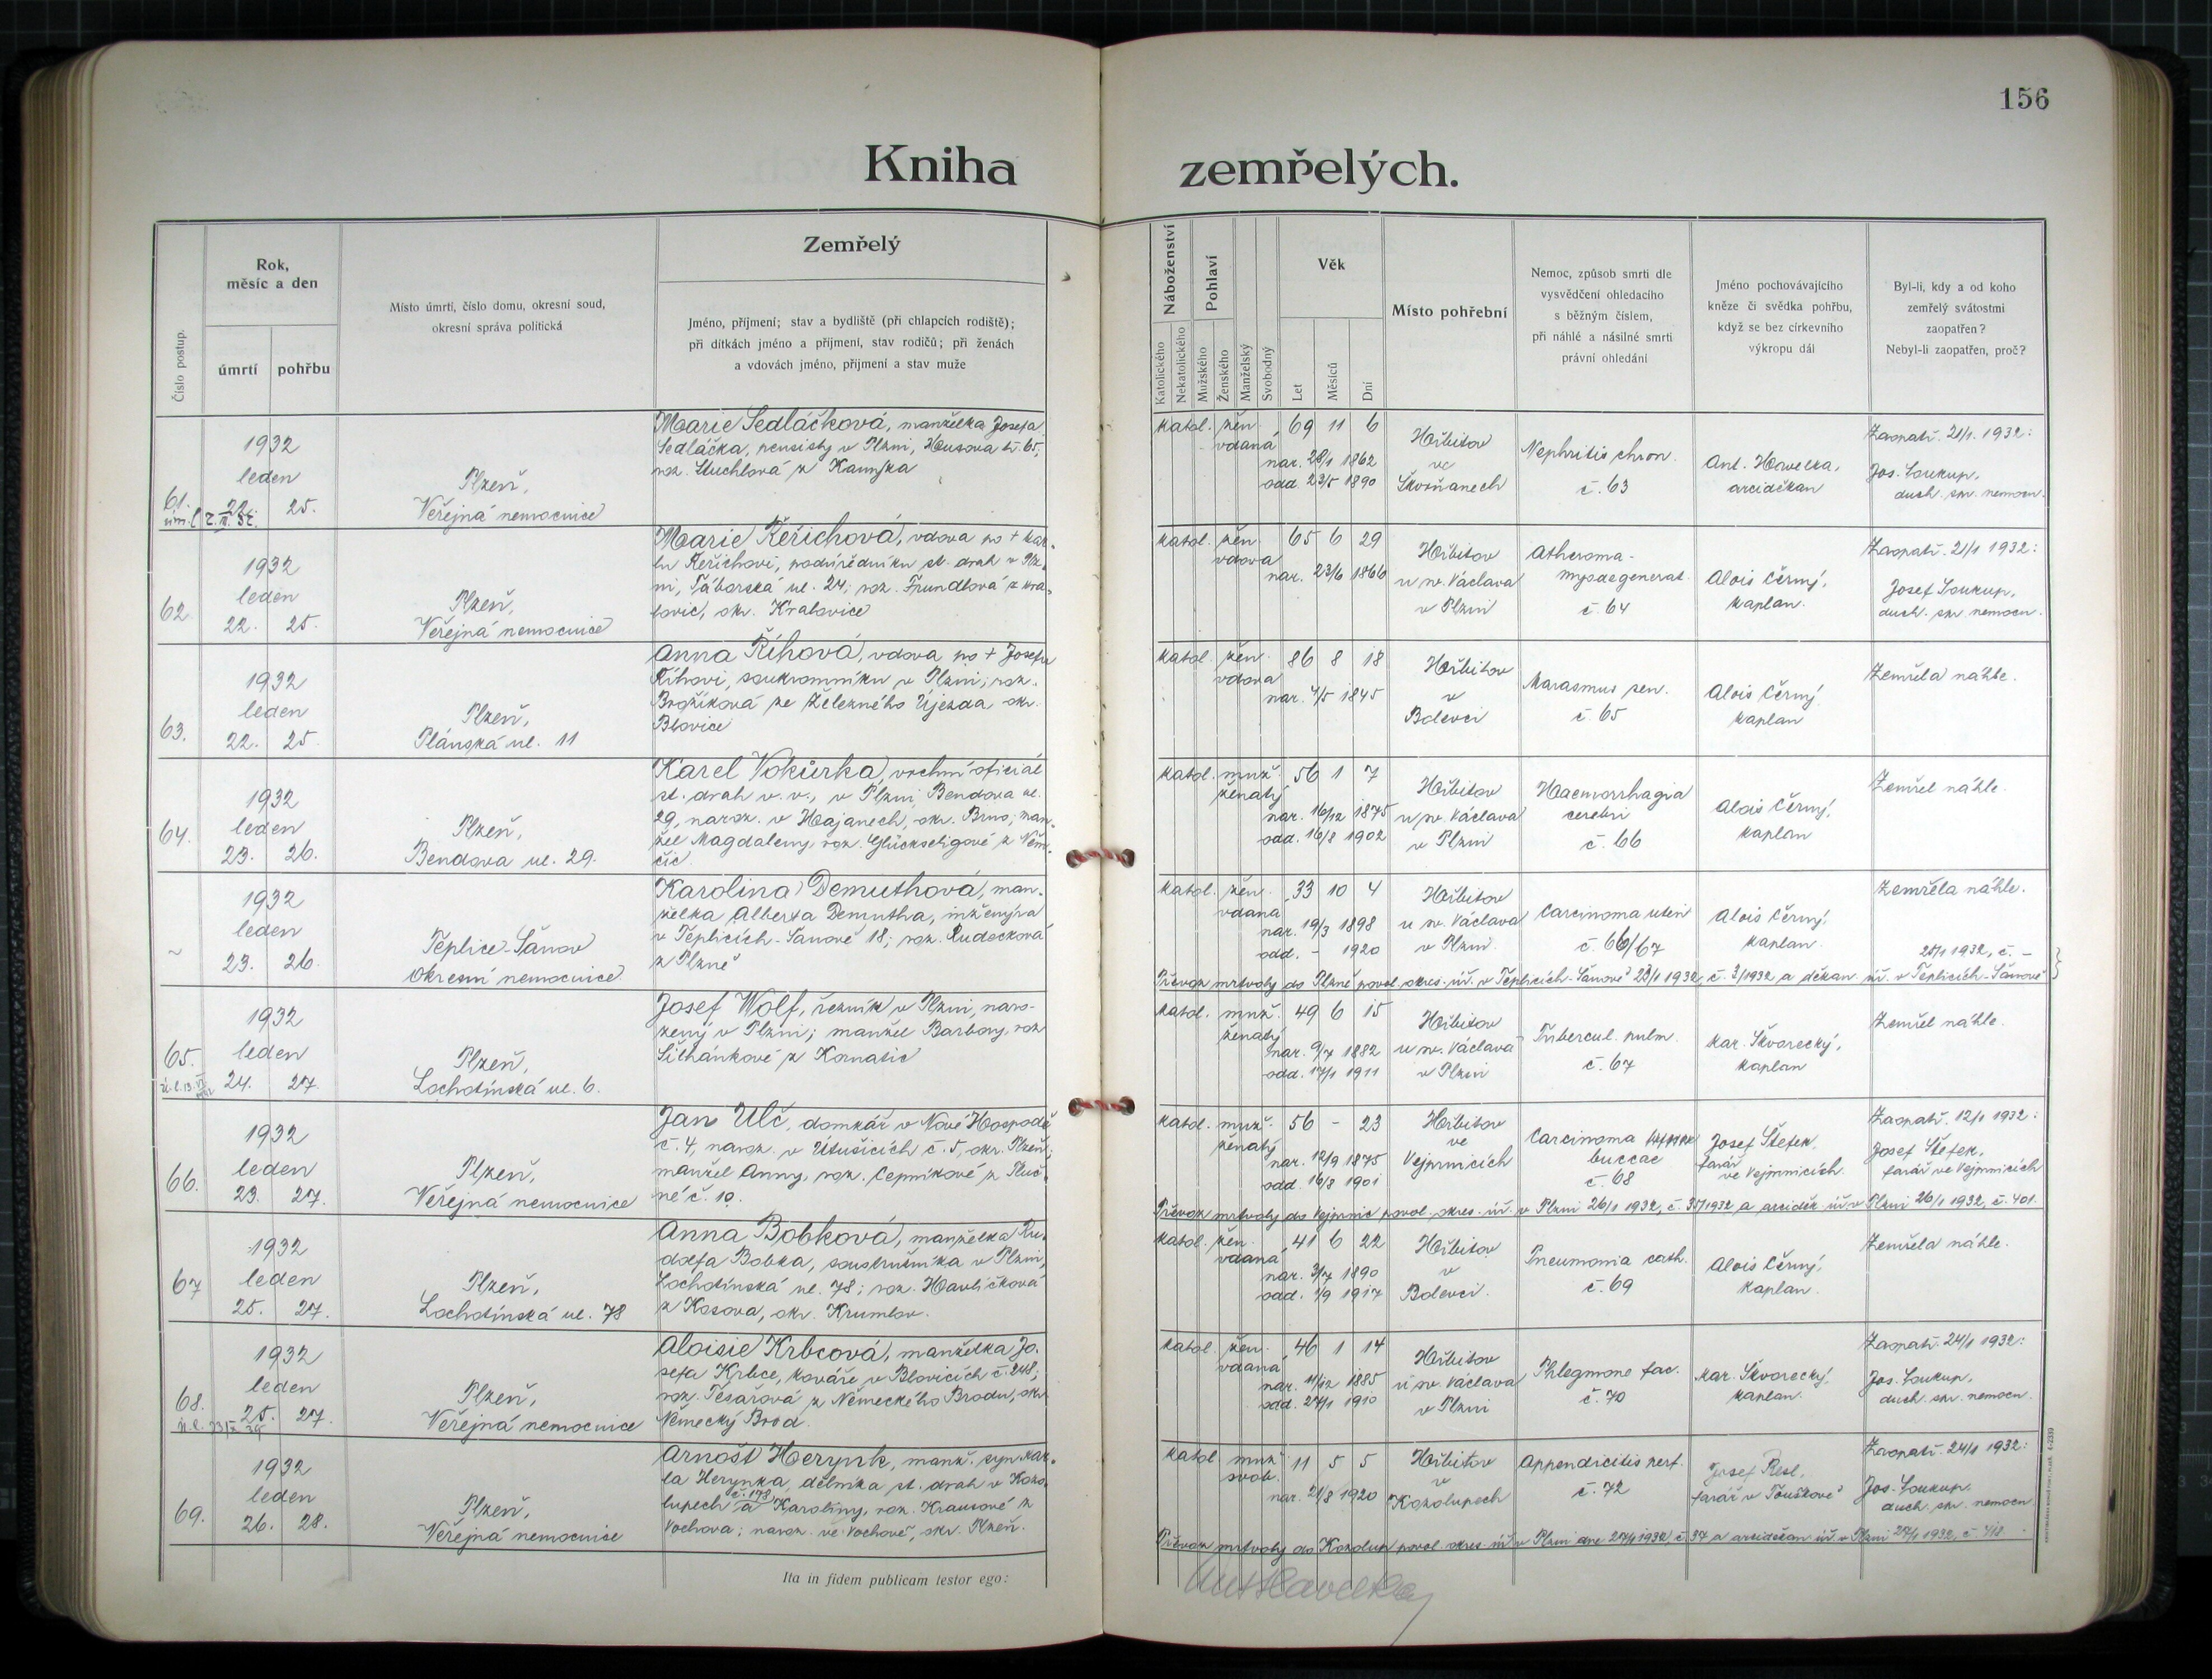 156
Kniha zemřelých.
Číslo postup.
Rok, měsíc a den
úmrtí
pohřbu
Místo úmrtí, číslo domu, okresní soud,
okresní správa politická
Zemřelý
Jméno, příjmení; stav a bydliště (při chlapcích rodiště);
při dítkách jméno a příjmení, stav rodičů; při ženách
a vdovách jméno, přijmení a stav muže
Náboženství
Katolického
Nekatolického
Pohlaví
Mužského
Ženského
Manželský
Svobodný
Věk
Let
Měsíců
Dní
Místo pohřební
Nemoc, způsob smrti dle
vysvědčení ohledacího
s běžným číslem,
při náhlé a násilné smrti
právní ohledání
Jméno pochovávajícího
kněze či svědka pohřbu,
když se bez církevního
výkropu dál
Byl-li, kdy a od koho
zemřelý svátostmi
zaopatřen?
Nebyl-li zaopatřen, proč?
61.
1932
leden
22. 25.
Plzeň,
Veřejná nemocnice
Marie Sedláčková, manželka Josefa
Sedláčka, pensisty v Plzni, Husova tř. 65,
roz. Stuchlová z
katol. žen. 69 11 6
vdaná
nar. 28/1 1862
odd. 23/5 1890
Hřbitov
ve
Skvrňanech
Nephritis chron.
č. 63
Ant. Havelka,
arciděkan
Zaopatř. 21/1. 1932:
Jos. Soukup,
duch. spr. nemocn.
62.
1932
leden
22. 25.
Plzeň,
Veřejná nemocnice
Marie Řeřichová, vdova po + Kar-
lu Řeřichovi, podúředníku st. drah v Plz-
ni, Táborská ul. 24; roz. Frundlová z Kra-
lovic, okr. Kralovice
katol. žen. 65 6 29
vdova
nar. 23/6 1866
Hřbitov
u sv. Václava
v Plzni
Atheroma-
myodegenerat.
č. 64
Alois Černý,
kaplan.
Zaopatř. 21/1 1932:
Josef Soukup,
duch. spr. nemocn.
63.
1932
leden
22. 25.
Plzeň,
Plánská ul. 11
Anna Říhová, vdova po + Josefu
Říhovi, soukromníku v Plzni; roz.
Brožíková ze Železného Újezda okr.
Blovice
katol. žen. 86 8 18
vdova
nar. 4/5 1845
Hřbitov
v
Bolevci
Marasmus sen.
č. 65
Alois Černý,
kaplan
Zemřela náhle.
64.
1932
leden
23. 26.
Plzeň,
Bendova ul. 29.
Karel Vokůrka, vrchní oficiál
st. drah v. v., v Plzni, Bendova ul.
29, naroz. v Hajanech, okr. Brno; man-
žel Magdaleny, roz. Glückseligové z Něm-
čic.
katol. muž. 56 1 7
ženatý
nar. 16/12 1875
odd. 16/8 1902
Hřbitov
u sv. Václava
v Plzni
Haemorrhagia
cerebri
č. 66
Alois Černý,
kaplan
Zemřel náhle.
~
1932
leden
23. 26.
Teplice-Šanov
Okresní nemocnice
Karolina Demuthová, man-
želka Alberta Demutha, inženýra
v Teplicích-Šanově 18; roz. Rudecková
z Plzně
katol. žen. 33 10 4
vdaná
nar. 19/3 1898
odd. - 1920
Hřbitov
u sv. Václava
v Plzni.
Carcinoma uteri
č. 66/67
Alois Černý,
kaplan.
Zemřela náhle.
25/1 1932, č. –
Převoz mrtvoly do Plzně povol. okres. úř. v Teplicích-Šanově 23/1 1932, č. 3/1932 a děkan. úř. v Teplicích-Šanově
65.
1932
leden
24. 27.
Plzeň,
Lochotínská ul. 6.
Josef Wolf, řezník v Plzni, naro-
zený v Plzni; manžel Barbory, roz.
Šilhánkové z Kornatic
katol. muž. 49 6 15
ženatý
nar. 9/7 1882
odd. 17/1 1911
Hřbitov
u sv. Václava
v Plzni
Tubercul. pulm.
č. 67
Kar. Škvorecký,
kaplan
Zemřel náhle.
66.
1932
leden
23. 27.
Plzeň,
Veřejná nemocnice
Jan Ulč, domkář v Nové Hospodě
č. 4, naroz. v Útušicích č. 5, okr. Plzeň;
manžel Anny, roz. Cepníkové z Tluč-
né č. 10.
katol. muž. 56 - 23
ženatý
nar. 12/9 1875
odd. 16/8 1901
Hřbitov
ve
Vejprnicích
Carcinoma
buccae
č. 68
Josef Štefek,
farář
ve Vejprnicích.
Zaopatř. 12/1 1932:
Josef Štefek,
farář ve Vejprnicích
Převoz mrtvoly do Vejprnic povol. okres. úř. v Plzni 26/1 1932, č. 35/1932 a arciděk. úř. v Plzni 26/1 1932, č. 401.
67
1932
leden
25. 27.
Plzeň,
Lochotínská ul. 78
Anna Bobková, manželka Ru-
dolfa Bobka, soustružníka v Plzni,
Lochotínská ul. 78; roz. Havlíčková
z Kosova, okr. Krumlov.
katol. žen. 41 6 22
vdaná
nar. 3/7 1890
odd. 1/9 1917
Hřbitov
v
Bolevci.
Pneumonia cath.
č. 69
Alois Černý,
kaplan.
Zemřela náhle.
68.
1932
leden
25. 27.
Plzeň,
Veřejná nemocnice
Aloisie Krbcová, manželka Jo-
sefa Krbce, kováře v Blovicích č. 248;
roz. Tesařová z Německého Brodu, okr.
Německý Brod.
katol. žen. 46 1 14
vdaná
nar. 11/12 1885
odd. 27/1 1910
Hřbitov
u sv. Václava
v Plzni
Phlegmone fac.
č. 70
Kar. Škvorecký,
kaplan.
Zaopatř. 24/1 1932:
Jos. Soukup,
duch. spr. nemocn.
69.
1932
leden
26. 28.
Plzeň,
Veřejná nemocnice
Arnošt Herynk, manž. syn Kar-
la Herynka, dělníka st. drah v Kozo-
lupech č. 178, a Karoliny, roz. Krausové z
Vochova; naroz. ve Vochově, okr. Plzeň.
katol. muž. 11 5 5
svob.
nar. 21/8 1920
Hřbitov
v
Kozolupech
Appendicitis perf.
č. 72
Josef Resl,
farář v Touškově
Zaopatř. 24/1 1932:
Jos. Soukup,
duch. spr. nemocn.
Převoz mrtvoly do Kozolup povol. okres. úř. v Plzni dne 27/1 1932, č. 37 a arciděkan. úř. v Plzni 27/1 1932, č. 418.
Ita in fidem publicam testor ego:
Ant Havelka